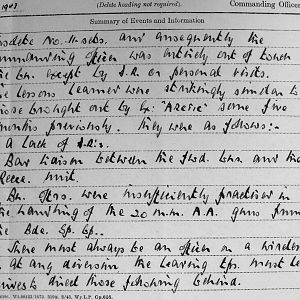 1943
(Delete heading not required).
Commanding Officer
Summary of Events and Information
No. 11 sets. and consequently the
Commanding Officer was entirely out of touch
the Bn. except by L.O. or personal visits.
lessons learned were strikingly similar to
those brought out by Ex. "Arctic" some five
months previously. They were as follows:-
A lack of
Bad liaison between the fwd. bns. and the
Recce. unit.
Bn. Ofrs. were insufficiently practised in
the handling of the 20 m.m. A.A. guns from
the Bde. Sp. Gp.
There must always be an officer on a wireless
at any diversion the leading
must direct those following behind.